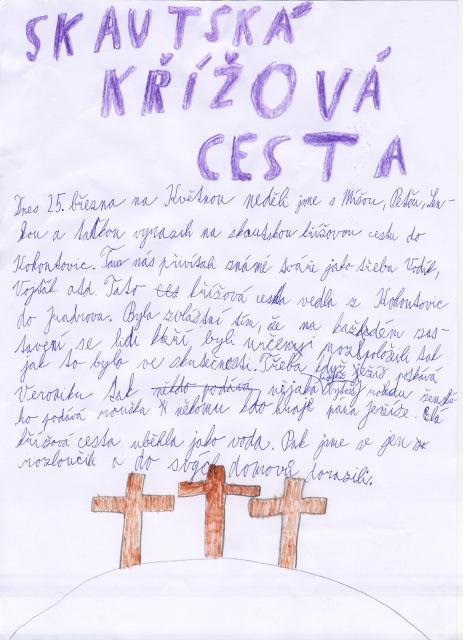 SKAUTSKÁ
KŘÍŽOVÁ
CESTA
Dnes 25. března na Květnou neděli jsme s Míšou, Peťou, Len-
kou a taťkou vyrazili na skautskou křížovou cestu do
Kohoutovic. Tam nás přivítali známé tváře jako třeba Vodík,
Vojťák atd. Tato křížová cesta vedla z Kohoutovic
do Jundrova. Byla zvláštní tím, že na každém zas-
tavení se lidi kteří byli určenyi rozpoložili tak
jak to bylo ve skutečnosti. Třeba když Ježíš potkává
Veroniku tak nějaká v rouchu ženské-
ho podává roušku někomu kdo hraje pána Ježíše. Celá
křížová cesta uběhla jako voda. Pak jsme se jen
rozloučili a do svých domovů dorazili.